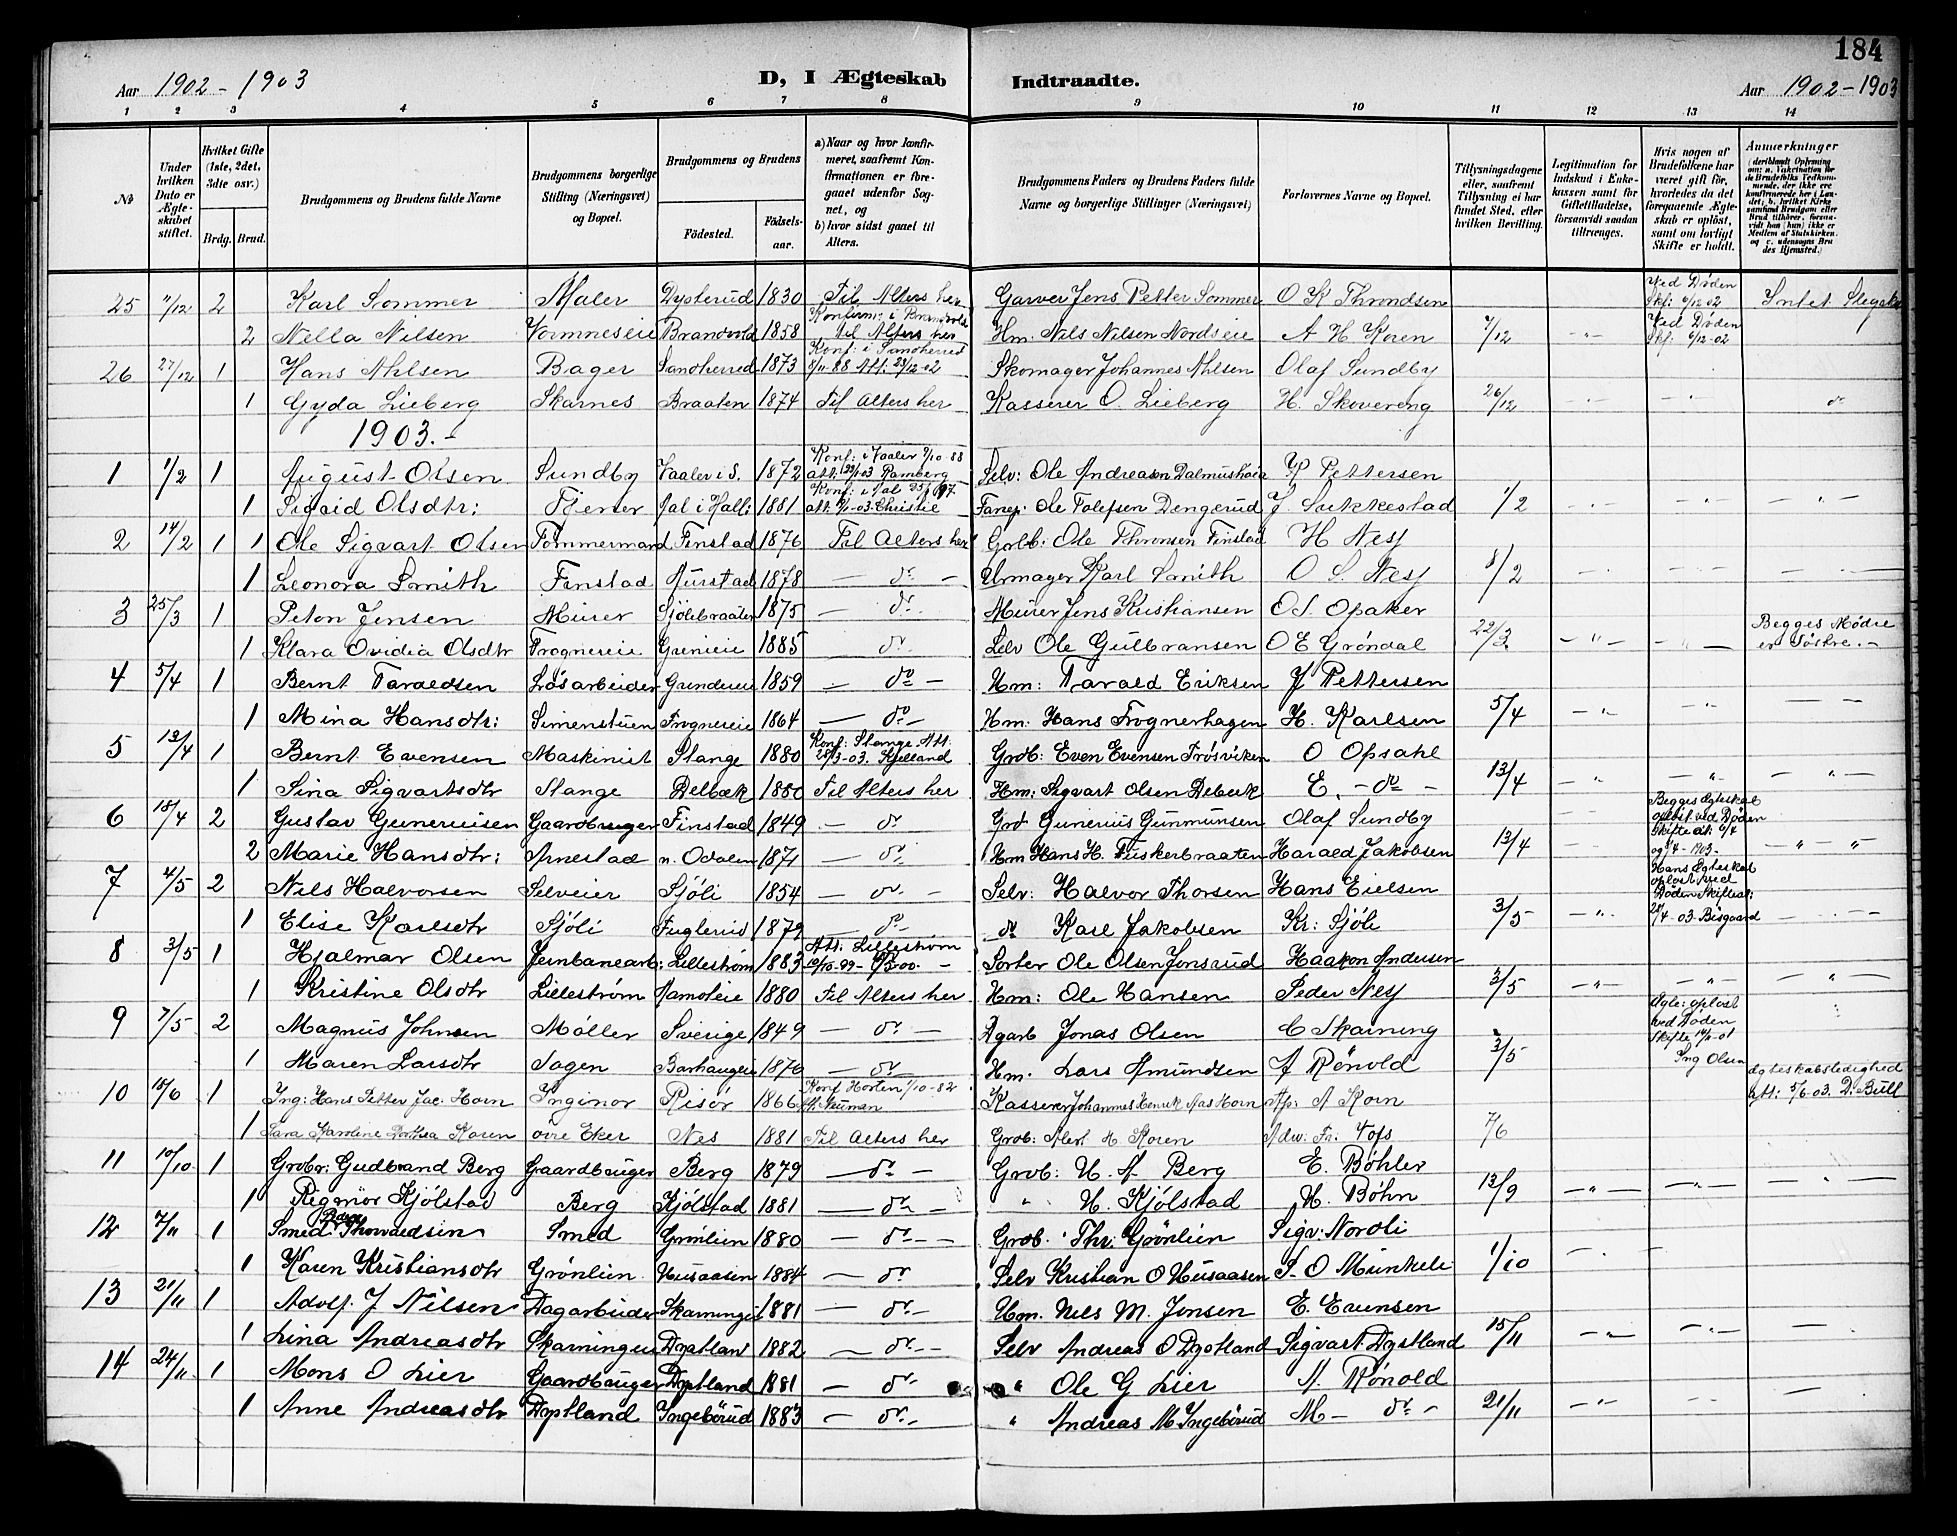 184
Aar 1902 - 1903 D, I Ægteskab Indtraadte. Aar 1902 - 1903
1 2 3 4 5 6 7 8 9 10 11 12 13 14
№
Under hvilken Dato er Ægteskabet stiftet.
Hvilket Gifte (1ste, 2det, 3die osv.)
Brdg. Brud.
Brudgommens og Brudens fulde Navne
Brudgommens borgerlige Stilling (Næringsvei) og Bopæl.
Brudgommens og Brudens
Fødested. Fødselsaar.
a) Naar og hvor konfirmeret, saafremt Konfirmationen er foregaaet udenfor Sognet, og
b) hvor sidst gaaet til Alters.
Brudgommens Faders og Brudens Faders fulde Navne og borgerlige Stillinger (Næringsvei)
Forlovernes Navne og Bopæl.
Tillysningsdagene eller, saafremt Tillysning ei har fundet Sted, efter hvilken Bevilling.
Legitimation for Indskud i Enkekassen samt for Giftetilladelse, forsaavidt saadan tiltrænges.
Hvis nogen af Brudefolkene har været gift før, hvorledes da det foregaaende Ægteskab er opløst, samt om lovligt Skifte er holdt.
Anmerkninger
25 11/12 2 Karl Sommer Maler Dysterud 1830 Til Alters her Garver Jens Petter Sommer O K Throndsen Ved Døden Skf: 6/12 02 Intet Slegtsk
2 Nella Nilsen Vormneseie Brandvold 1858 Konfirm: i Brandvold Til Alters her Hm: Nils Nilsen Nordseie A H Koren 7/12 - " - Ved Døden Skf: 6/12-02
26 27/12 1 Hans Ahlsen Bager Sandherred 1873 Konf: i Sandherred 8/11-88 Att: 23/12-02 Skomager Johannes Ahlsen Olaf Sundby
1 Gyda Lieberg Skarnes Braaten 1874 Til Alters her Kasserer O. Lieberg H. Skovereng 26/12
1903. -
1 1/2 1 August Olsen Sundby Vaaler i S. 1872 Konf: i Vaaler 7/10 88 Att: 29/1 03 Ramberg Selv: Ole Andreasen K Pettersen
1 Sigrid Olsdtr: Tjener Aal i Hall: 1881 Konf: i Aal Att: 9/1-03 Christie Ole Tolefsen Dengerud J. Sukkestad 1/2
2 14/2 1 1 Ole Sigvart Olsen Tømmermand Finstad 1876 Til Alters her Grdb: Ole Thronsen Finstad H Nesj
1 Leonora Smith Finstad Aurstad 1878 - do - Urmager Karl Smith O S. Nesj 8/2
3 25/3 1 Peton Jensen Murer Sjölibraaten 1875 - do Murer Jens Kristiansen O S. Opaker
1 Klara Ovidia Olsdtr Frognereie Grenieie 1885 do Selv Ole Gulbransen O E Gröndal 22/3 - " - Begges Mödre er Söstre. -
4 5/4 1 Bernt Taraldsen Lösarbeider Grundereie 1859 - do - Hm: Tarald Eriksen J Pettersen
1 Mina Hansdtr: Simenstuen Frognereie 1864 - do - Hm: Hans Frognerhagen H. Karlsen 5/4
5 13/4 1 Bernt Evensen Maskinist Stange 1880 Konf: Stange Att. 28/3-03. Kjelland Grdb: Even Evensen Frösviken O Opsahl
1 Sina Sigvartsdtr Stange Delbæk 1880 Til Alters her Hm: Sigvart Olsen Delbæk E. - do - 13/4
6 18/4 2 Gustav Guneriusen Gaardbruger Finstad 1849 - do Grd Gunerius Gunmunsen Olaf Sundby Begges Ægteskab opløst ved Døden Skifte att: 6/4 og 4/4 - 1903.
2 Marie Hansdtr: Arnestad n. Odalen 1871 - do Hm Hans H. Fuskerbraaten Harald Jakobsen 13/4
7 4/5 2 Nils Halvorsen Selveier Sjöli 1854 - do - Selv: Halvor Thorsen Hans Eielsen Hans Egteskab oplöst ved Döden Skifteat: 28/4 - 03. Bisgaard
1 Elise Karlsdtr Sjöli Fuglerud 1879 - do - do Karl Jakobsen Kr: Sjöli 3/5
8 3/5 1 Hjalmar Olsen Jernbanearb: Lilleström 1883 Att: Lilleström Sorter Ole Olsen Jonsrud Haakon Andersen
1 Kristine Olsdtr Lilleström 1880 Til Alters her Hm: Ole Hansen Peder Nesj 3/5
9 7/5 2 Magnus Johnsen Møller Sverige 1849 - do - Dgarb Jonas Olsen C Skarning Egte: oplöst ved Döden Skifte 14/11-01 Ing Olsen
1 Maren Larsdtr Sagen Barhaugeie 1876 - do Hm. Lars Amundsen A Rönold 3/5
10 18/6 1 Ing: Hans Petter Jac: Horn Inginør Risør 1866 Konf Horten 1/10-82 Neuman Kasserer Johannes Henrik Aas Horn Ap: A Korn Ægteskabsledighed att: 5/6-03. D: Bull
1 Sara Karoline Dorthea Koren övre Eker Nes 1881 Til Alters her Grdb: Albert H. Koren Adv: Fr: Tofs 7/6
11 10/10 1 Grdbr: Gudbrand Berg Gaardbruger Berg 1879 - do - Grdb: H. A Berg E. Böhler
1 Regmor Kjölstad Berg Kjölstad 1881 - do - " H. Kjölstad H. Böhn 13/9
12 7/11 1 Smed Thorvaldsen Smed Grönlien 1880 - do - Grdb. Thr: Grönlien Sigv: Nordli
1 Karen Kristiansdtr Grönlien Husaasen 1884 - do Selv Kristian O Husaasen S. O Munkeli 1/10
13 21/11 1 Adolf. J Nilsen Dagarbeider Skarningei 1881 - do - Hm. Nils M. Jonsen E. Evensen
1 Lina Andreasdtr Skarningei Dystland 1882 - do - Selv Andreas O Dystland Sigvart Dystland 15/11
14 24/11 1 Mons O Lier Gaardbruger Dystland 1881 - do - " Ole G Lier A. Rönold
1 Anne Andreasdtr Dystland Ingebörud 1883 - do - " Andreas M Ingebörud M - do - 21/11